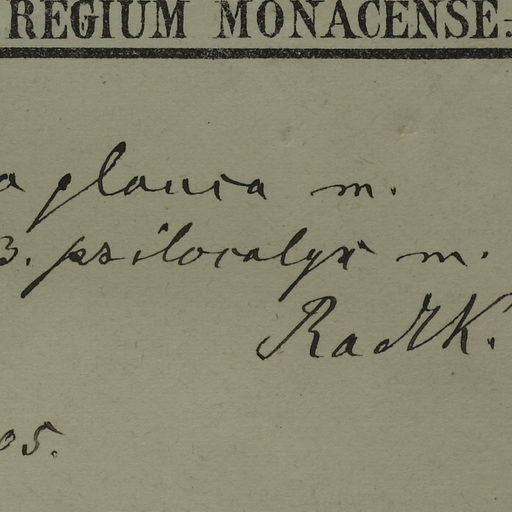 REGIUM MONACENSE.
a glauca m.
B. psilocalyx m.
Radlk.
05.